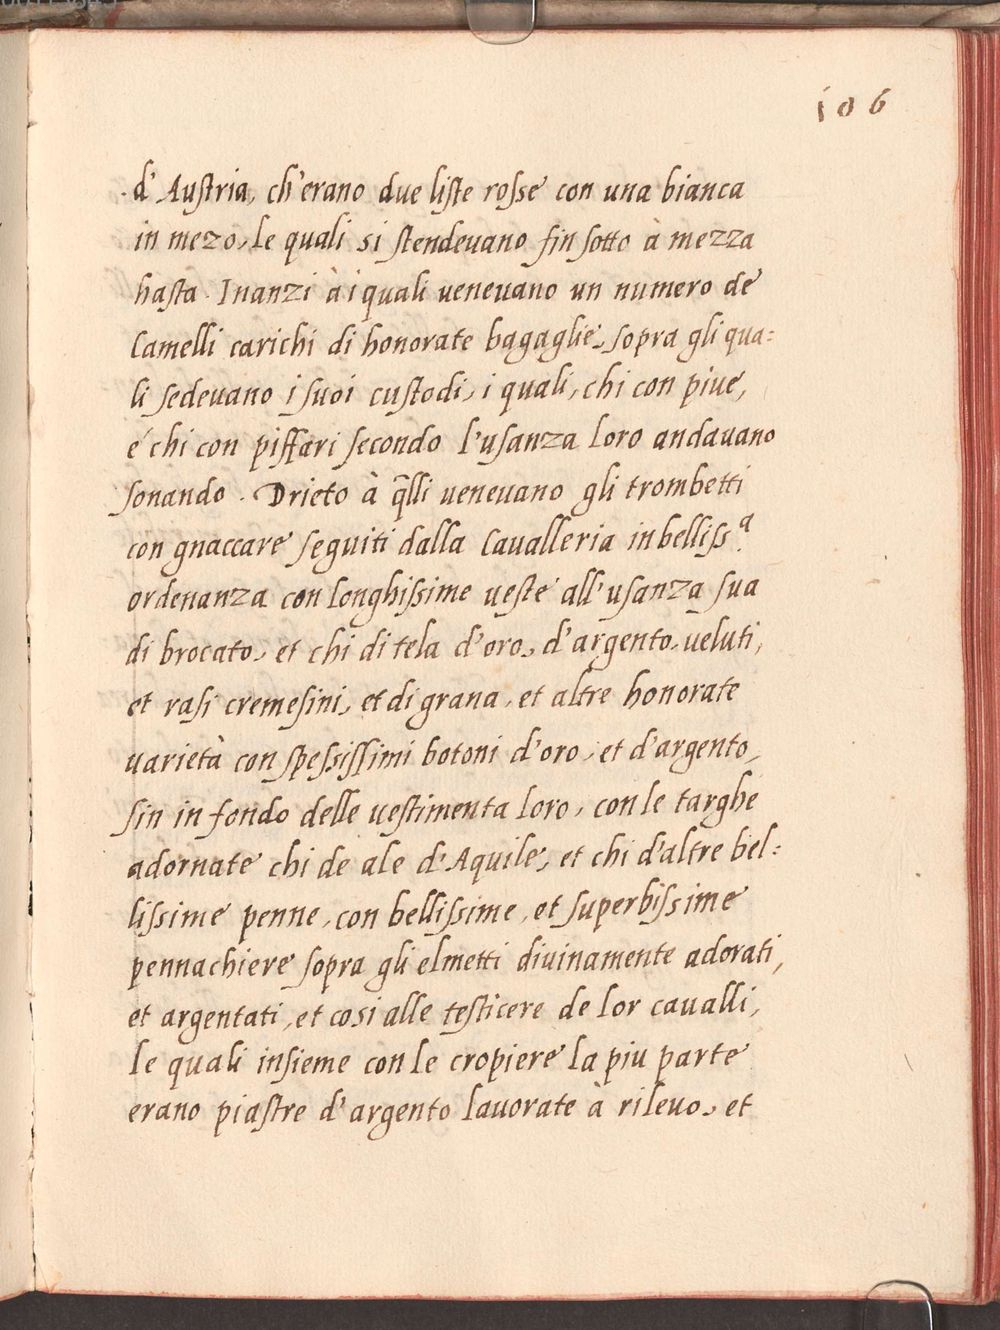 106
d'Austria, ch'erano due liste rosse con una bianca
in mezo, le quali si stendeuano fin sotto à mezza
hasta. Inanzi à i quali ueneuano un numero de
Camelli carichi di honorate bagaglie, sopra gli qua=
li sedeuano i suoi custodi, i quali, chi con piue,
e chi con piffari secondo l'usanza loro andauano
sonando. Drieto à q̃lli ueneuano gli trombetti
con gnaccare seguiti dalla Caualleria in belliss.ª
ordenanza con longhissime ueste all'usanza sua
di brocato, et chi di tela d'oro, d'argento, ueluti,
et rasi cremesini, et di grana, et altre honorate
uarietà con spessissimi botoni d'oro, et d'argento,
sin in fondo delle uestimenta loro, con le targhe
adornate chi de ale d'Aquile, et chi d'altre bel=
lissime penne, con bellissime, et superbissime
pennachiere sopra gli elmetti diuinamente adorati,
et argentati, et cosi alle testicere de lor caualli,
le quali insieme con le cropiere la piu parte
erano piastre d'argento lauorate à rileuo, et